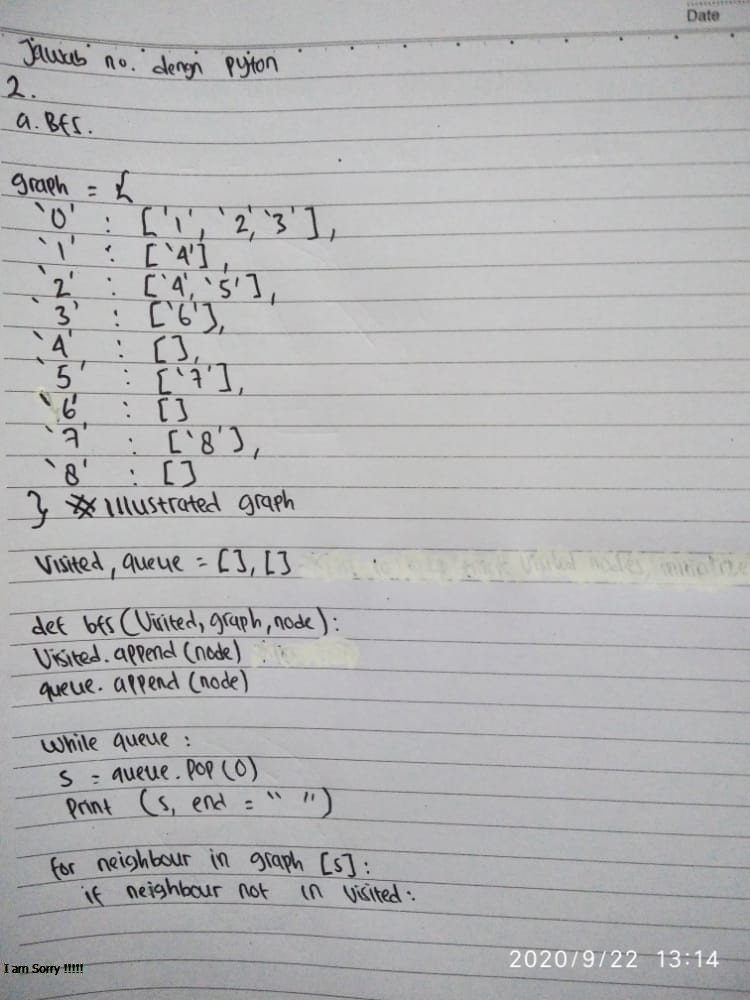 Date
Jawab no. dengn pyton
2.
a. Bfs.
graph = {
'0' : ['1', '2', '3'],
'1' : ['4'],
'2' : ['4', '5'],
'3' : ['6'],
'4' : [],
'5' : ['7'],
'6' : []
'7' : ['8'],
'8' : []
} # Illustrated graph
Visited, queue = [], []
def bfs(Visited, graph, node):
Visited.append(node)
queue.append(node)
While queue :
s = queue.pop(0)
Print (s, end = " ")
for neighbour in graph [s]:
if neighbour not in visited:
2020/9/22 13:14
I am Sorry !!!!!